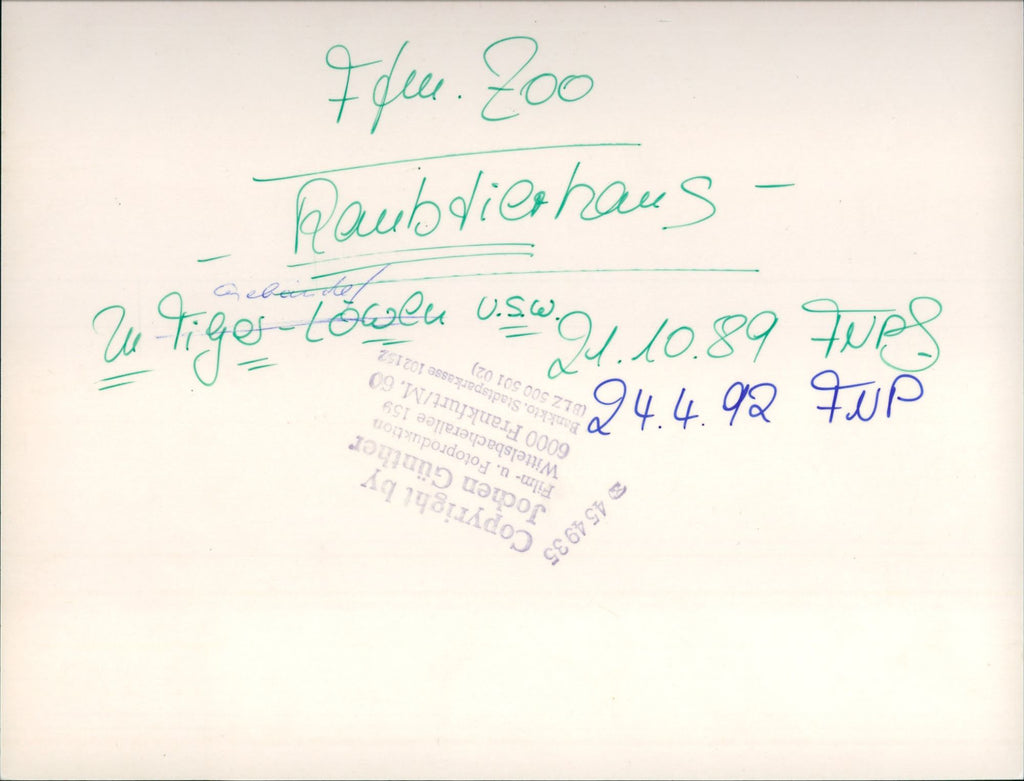 Ffm. Zoo
Raubtierhaus -
Zu Tiger-Löwen u.s.w.
21.10.89 FNPS
24.4.92 FNP
Copyright by
Jochen Günther
Film- u. Fotoproduktion
Wittelsbacherallee 159
6000 Frankfurt/M. 60
Bankkto. Stadtsparkasse 102152
(BLZ 500 501 02)
☎ 454935